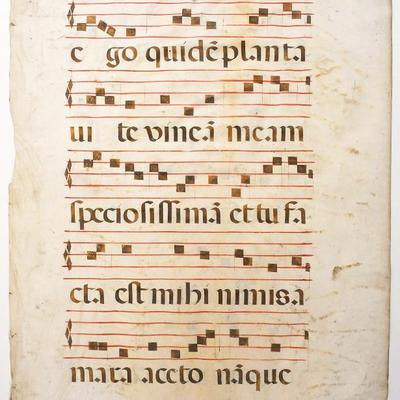 e go quidē planta
ui te vineā meam
speciosissimā et tu fa
cta est mihi nimis a
mara aceto nāque